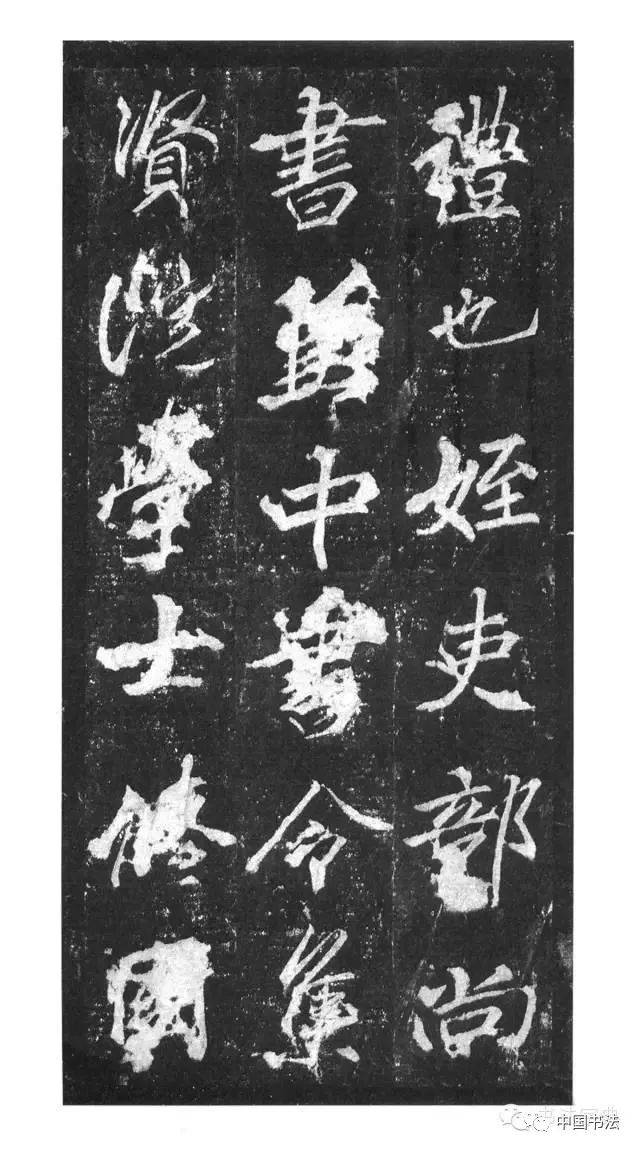 禮也姪吏部尚
書兼中書令集
賢院學士脩國
中国书法